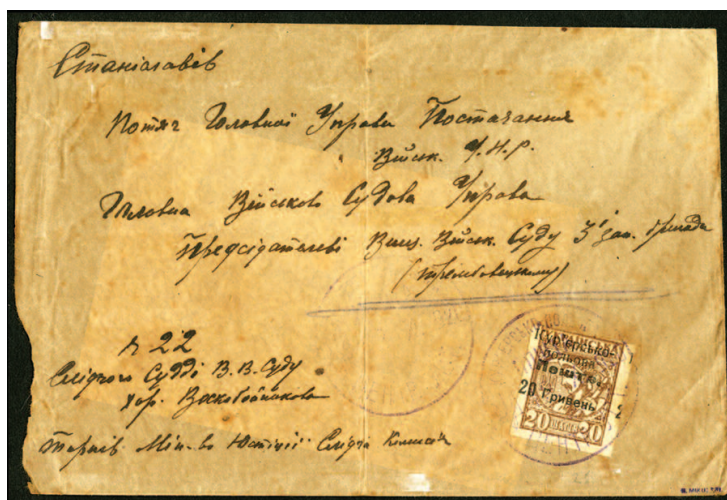 Станіславів
Потяг Головної Управи Постачання
Військ. У.Н.Р.
Головна Військово Судова Управа
Предсідателеві Вищ. Військ. Суду 3ї зап. бригади
№ 22
Слідчого Судді В. В. Суду
хор. Воскобойникова
Мін-во Юстиції Слідча Комісія
Кур'єрсько-
польова
Пошта
20 Гривень
20 ШАГІВ 20